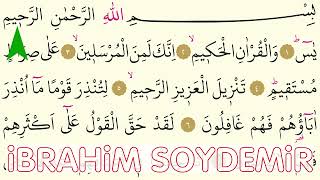 بِسْــــــــمِ اللهِ الرَّحْمٰنِ الرَّحٖيمِ
يٰسٓ ﴿١﴾ وَالْقُرْاٰنِ الْحَكٖيمِ ﴿٢﴾ اِنَّكَ لَمِنَ الْمُرْسَلٖينَ ﴿٣﴾ عَلٰى
مُسْتَقٖيمٍ ﴿٤﴾ تَنْزٖيلَ الْعَزٖيزِ الرَّحٖيمِ ﴿٥﴾ لِتُنْذِرَ قَوْمًا مَٓا اُنْذِرَ
اٰبَٓاؤُ۬هُمْ فَهُمْ غَافِلُونَ ﴿٦﴾ لَقَدْ حَقَّ الْقَوْلُ عَلٰٓى اَكْثَرِهِمْ
İBRAHİM SOYDEMİR